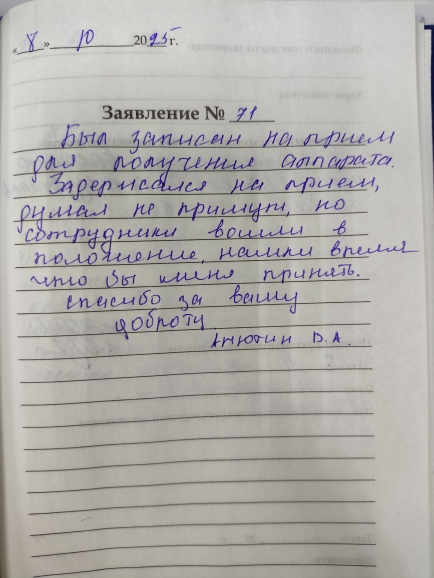 « 8 » 10 2025 г.
Заявление № 71
Был записан на прием
для получения аппарата.
Задержался на прием,
думал не примут, но
сотрудники вошли в
положение, нашли время
что бы меня принять.
спасибо за вашу
доброту
Анютин В.А.